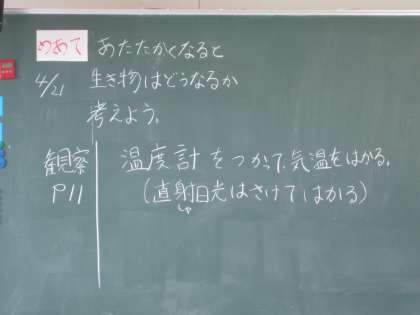 めあて あたたかくなると
4/21 生き物はどうなるか
考えよう。
観察 温度計をつかって、気温をはかる。
P11 (直射日光はさけてはかる)
しゃ